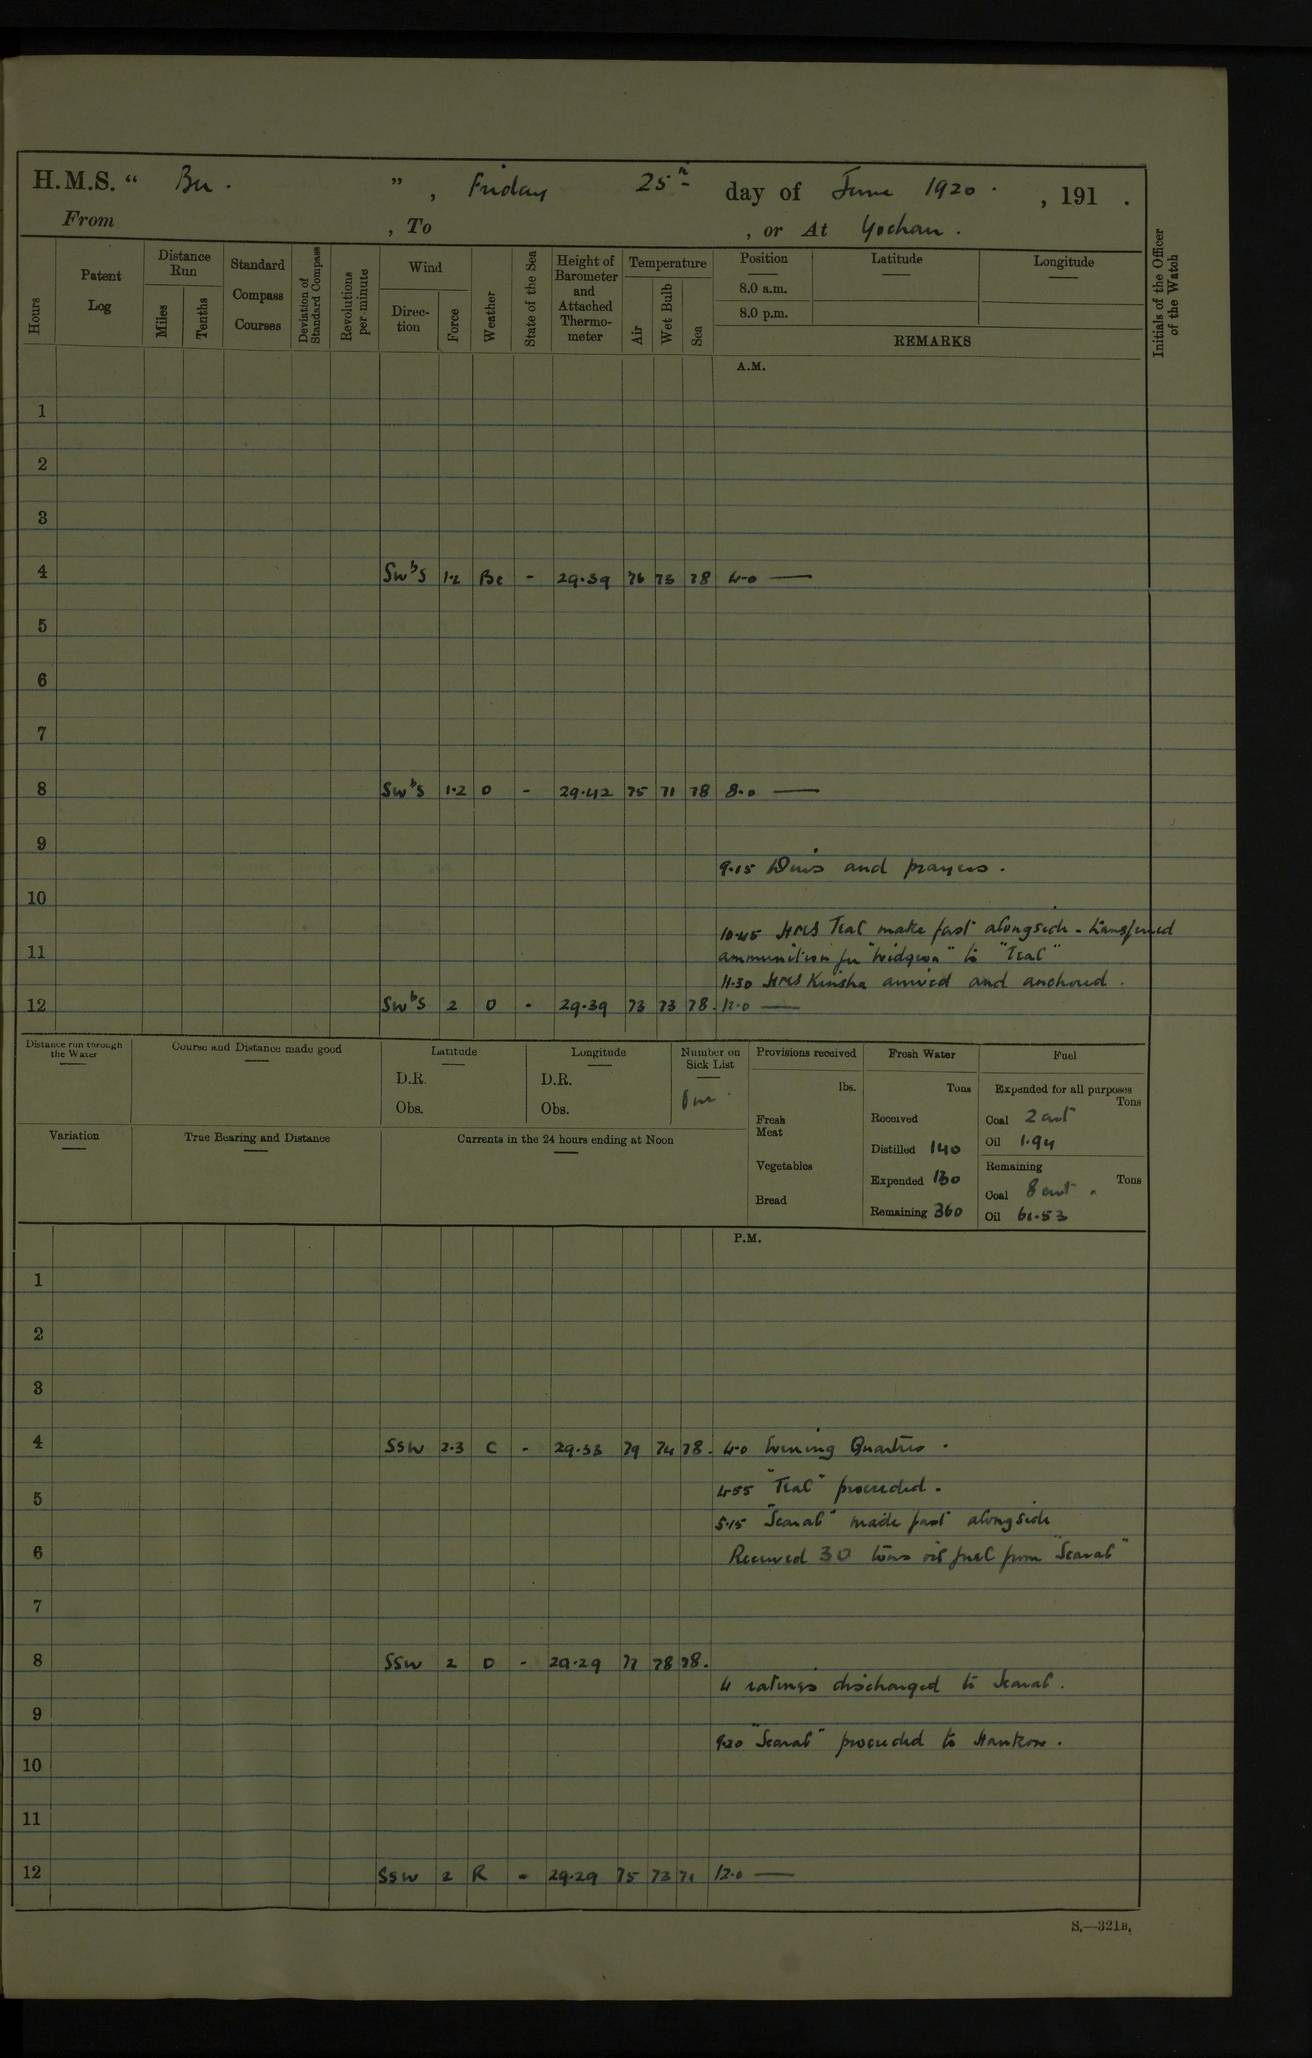 H.M.S. " Bee . " , Friday 25th day of June 1920 . , 191 .
From , To , or At Yochow .
Hours
Patent Log
Distance Run
Miles
Tenths
Standard Compass Courses
Deviation of Standard Compass
Revolutions per minute
Wind
Direction
Force
Weather
State of the Sea
Height of Barometer and Attached Thermometer
Temperature
Air
Wet Bulb
Sea
Position
8.0 a.m.
8.0 p.m.
Latitude
Longitude
REMARKS
Initials of the Officer of the Watch
A.M.
1
2
3
4 SWbS 1·2 Bc - 29·39 76 73 78 4·0 —
5
6
7
8 SWbS 1·2 O - 29·42 75 71 78 8·0 —
9
9·15 Divs and prayers .
10
10·45 HMS Teal make fast alongside - transferred
11 ammunition for "Widgeon" to "Teal"
11·30 HMS Kinsha arrived and anchored .
12 SWbS 2 O - 29·39 73 73 78 . 12·0 —
Distance run through the Water
Course and Distance made good
Latitude
D.R.
Obs.
Longitude
D.R.
Obs.
Number on Sick List
Provisions received
lbs.
Fresh Meat
Vegetables
Bread
Fresh Water
Tons
Received
Distilled 140
Expended 130
Remaining 360
Fuel
Expended for all purposes
Tons
Coal 2 cwt
Oil 1·94
Remaining
Tons
Coal 8 cwt .
Oil 61·53
Variation
True Bearing and Distance
Currents in the 24 hours ending at Noon
P.M.
1
2
3
4 SSW 2·3 C - 29·33 79 74 78 . 4·0 Evening Quarters .
4·55 "Teal" proceeded .
5
5·15 "Scarab" made fast alongside
6 Received 30 tons oil fuel from "Scarab"
7
8 SSW 2 O - 29·29 77 78 78 .
4 ratings discharged to Scarab .
9
9·20 "Scarab" proceeded to Hankow .
10
11
12 SSW 2 R - 29·29 75 73 71 12·0 —
S.—321B.